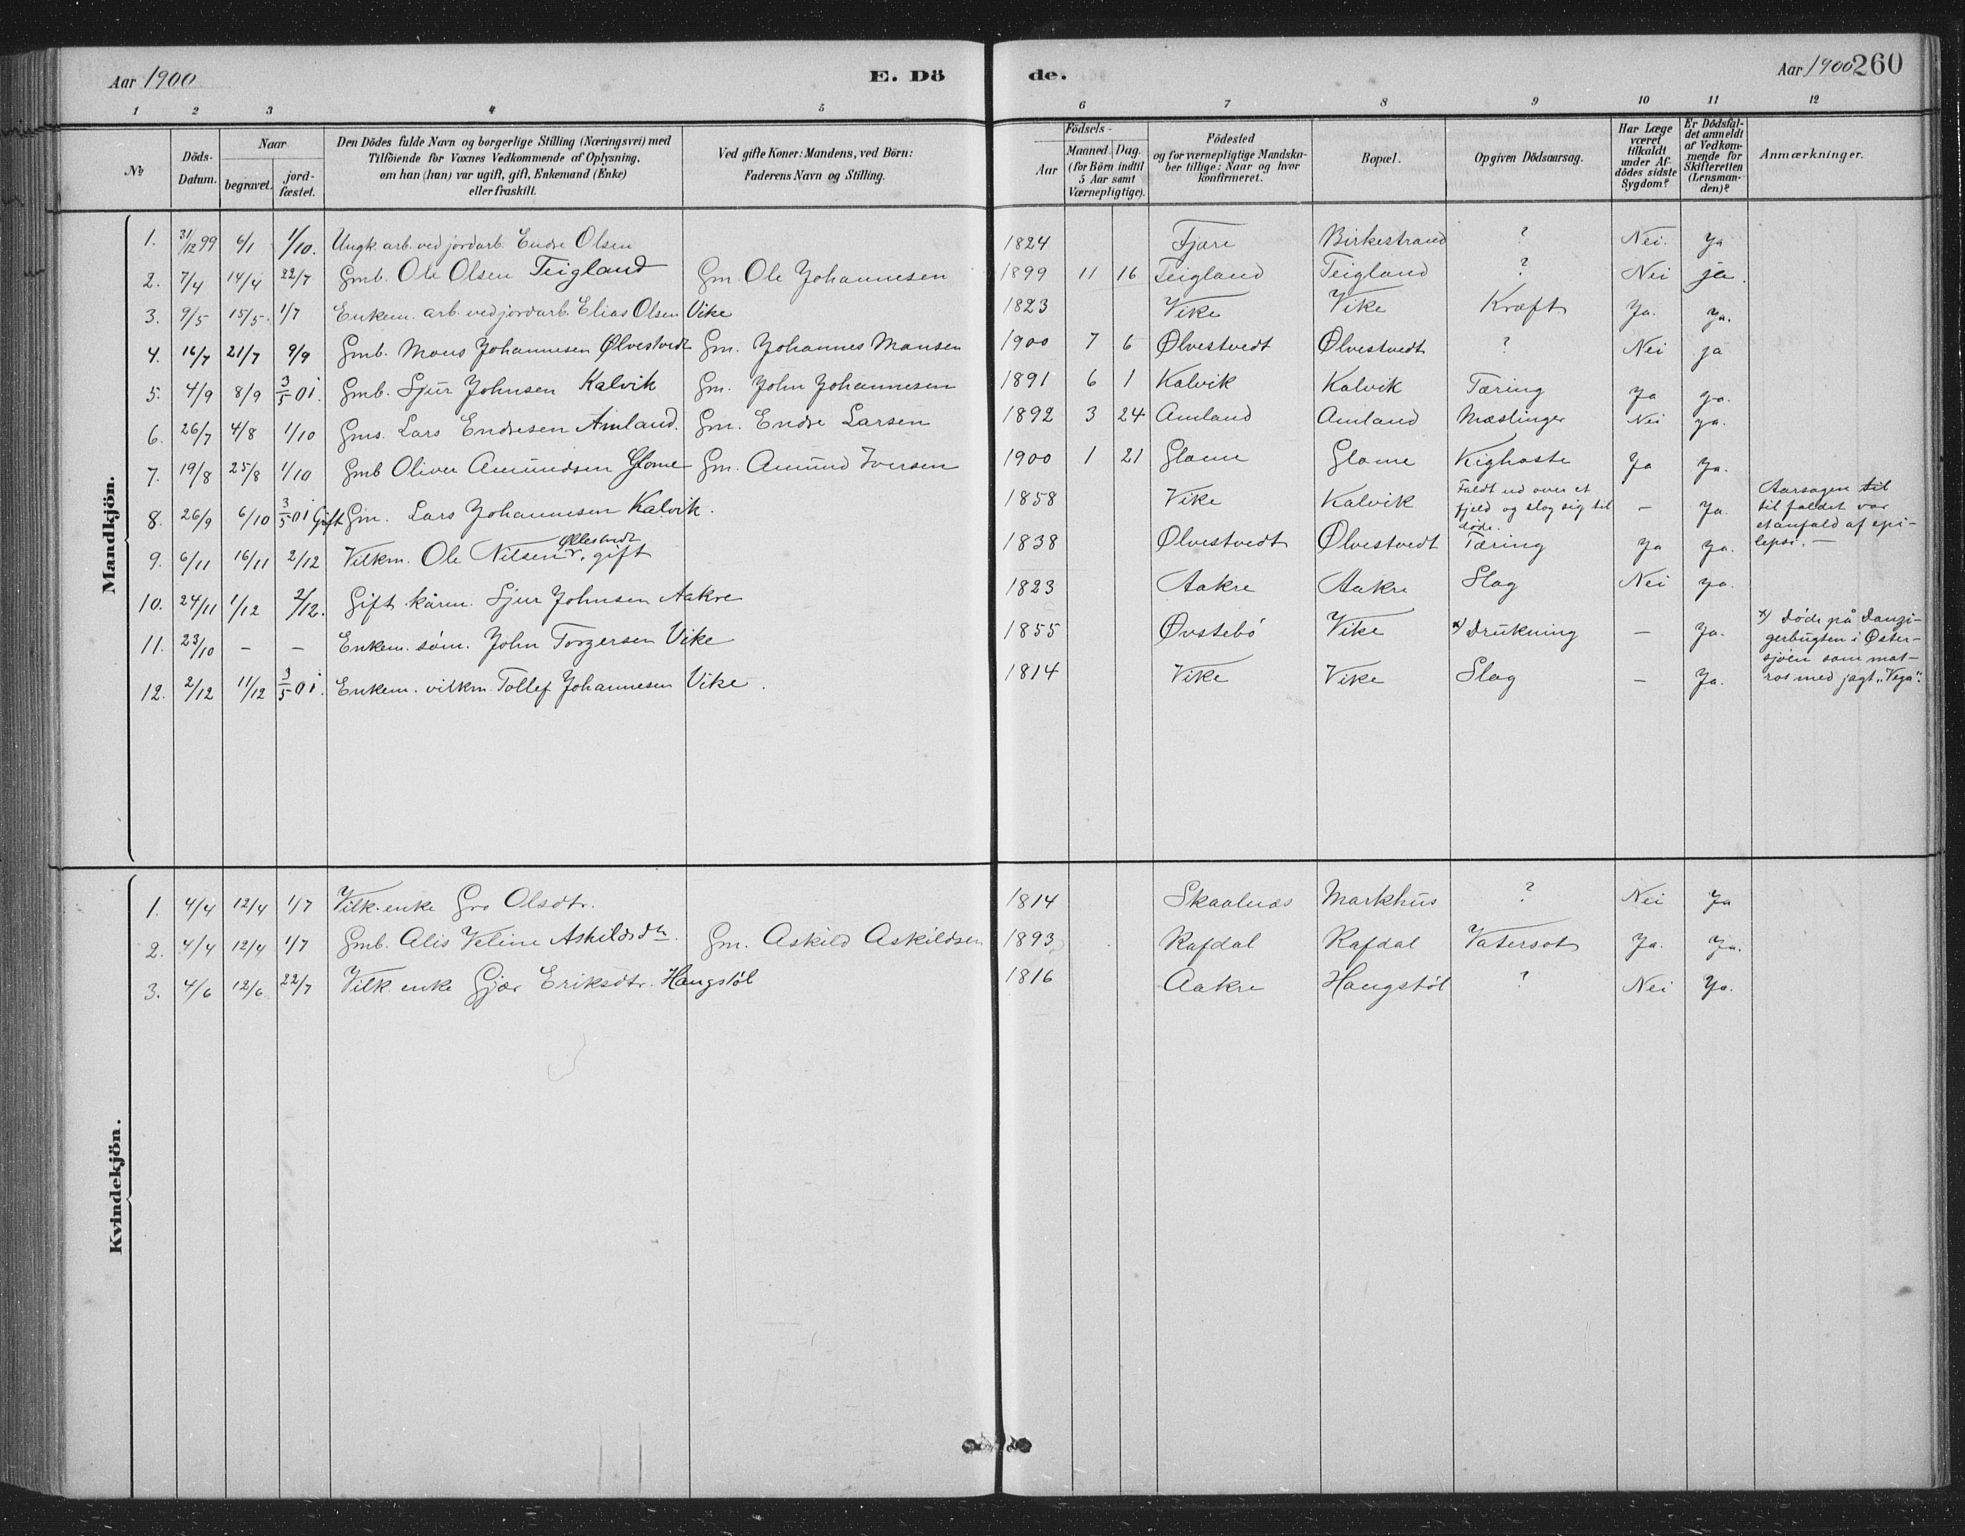 Aar 1900
E. Dö
de.
Aar 1900 260
1 2 3 4 5 6 7 8 9 10 11 12
№
Döds-Datum.
Naar
begravet.
jord-fæstet.
Den Dödes fulde Navn og borgerlige Stilling (Næringsvei) med
Tilföiende for Voxnes Vedkommende af Oplysning,
om han (hun) var ugift, gift, Enkemand (Enke)
eller fraskilt.
Ved gifte Koner: Mandens, ved Börn:
Faderens Navn og Stilling.
Födsels-
Aar
Maaned. Dag.
(for Börn indtil
5 Aar samt
Værnepligtige).
Födested
og for værnepligtige Mandska-
ber tillige: Naar og hvor
konfirmeret.
Bopæl.
Opgiven Dödsaarsag.
Har Læge
været
tilkaldt
under Af-
dödes sidste
Sygdom?
Er Dödsfal-
det anmeldt
af Vedkom-
mende for
Skifteretten
(Lensman-
den)?
Anmærkninger.
Mandkjön.
1. 31/12 99 6/1 1/10. Ungk. arb. ved jordarb. Endre Olsen 1824 Fjære Birkestrand ? Nei. Ja
2. 7/4 14/4 22/7 Gmb. Ole Olsen Teigland Gm. Ole Johannesen 1899 11 16 Teigland Teigland ? Nei ja.
3. 9/5 15/5. 1/7 Enkem. arb. ved jordarb. Elias Olsen Vike 1823 Vike Vike Kræft Ja. ja.
4. 16/7 21/7 9/9 Gmb. Mons Johannesen Ølvestvedt Gm. Johannes Monsen 1900 7 6 Ølvestvedt Ølvestvedt ? Nei ja
5. 4/9 8/9 3/5 01. Gmb. Sjur Johnsen Kalvik Gm. John Johannesen 1891 6 1 Kalvik Kalvik Tæring Ja ja.
6. 26/7 4/8 1/10 Gms. Lars Endresen Amland. Gm. Endre Larsen 1892 3 24 Amland Amland Mæslinger Nei ja.
7. 19/8 25/8 1/10 Gmb Oliver Amundsen Glome Gm. Amund Iversen 1900 1 21 Glome Glome Kighoste Ja Ja.
8. 26/9 6/10 3/5 01 Gift Gm. Lars Johannesen Kalvik. 1858 Vike Kalvik Faldt ud over et
fjeld og slog sig til
døde. — Ja. Aarsagen til
til faldet var
et anfald af epi-
lepsi. —
9. 6/11 16/11 2/12 Vilkm. Ole Nilsen Øllestvedt, gift 1838 Ølvestvedt Ølvestvedt Tæring Ja Ja.
10. 24/11 1/12 2/12. Gift kårm. Sjur Johnsen Aakre 1823 Aakre Aakre Slag Nei ja.
11. 23/10 — — Enkem. søm. John Torgersen Vike 1855 Øvstebö Vike x) Drukning — Ja. x) Døde på Danzi-
gerbugten i Øster-
sjöen som mat-
ros med jagt „Vega".
12. 2/12 11/12 3/5 01. Enkem. vilkm. Tollef Johannesen Vike. 1814 Vike Vike Slag — Ja.
Kvindekjön.
1. 4/4 12/4 1/7 Vilk. enke Gro Olsdtr. 1814 Skaalnæs Markhus ? Nei Ja
2. 4/4 12/4 1/7 Gmb. Alis Veline Askildsdtr. Gm. Askild Askildsen 1893 Rafdal Rafdal Vatersot Ja. Ja.
3. 4/6 12/6 22/7 Vilk. enke Gjær Eriksdtr. Haugstöl 1816 Aakre Haugstöl ? Nei Ja.